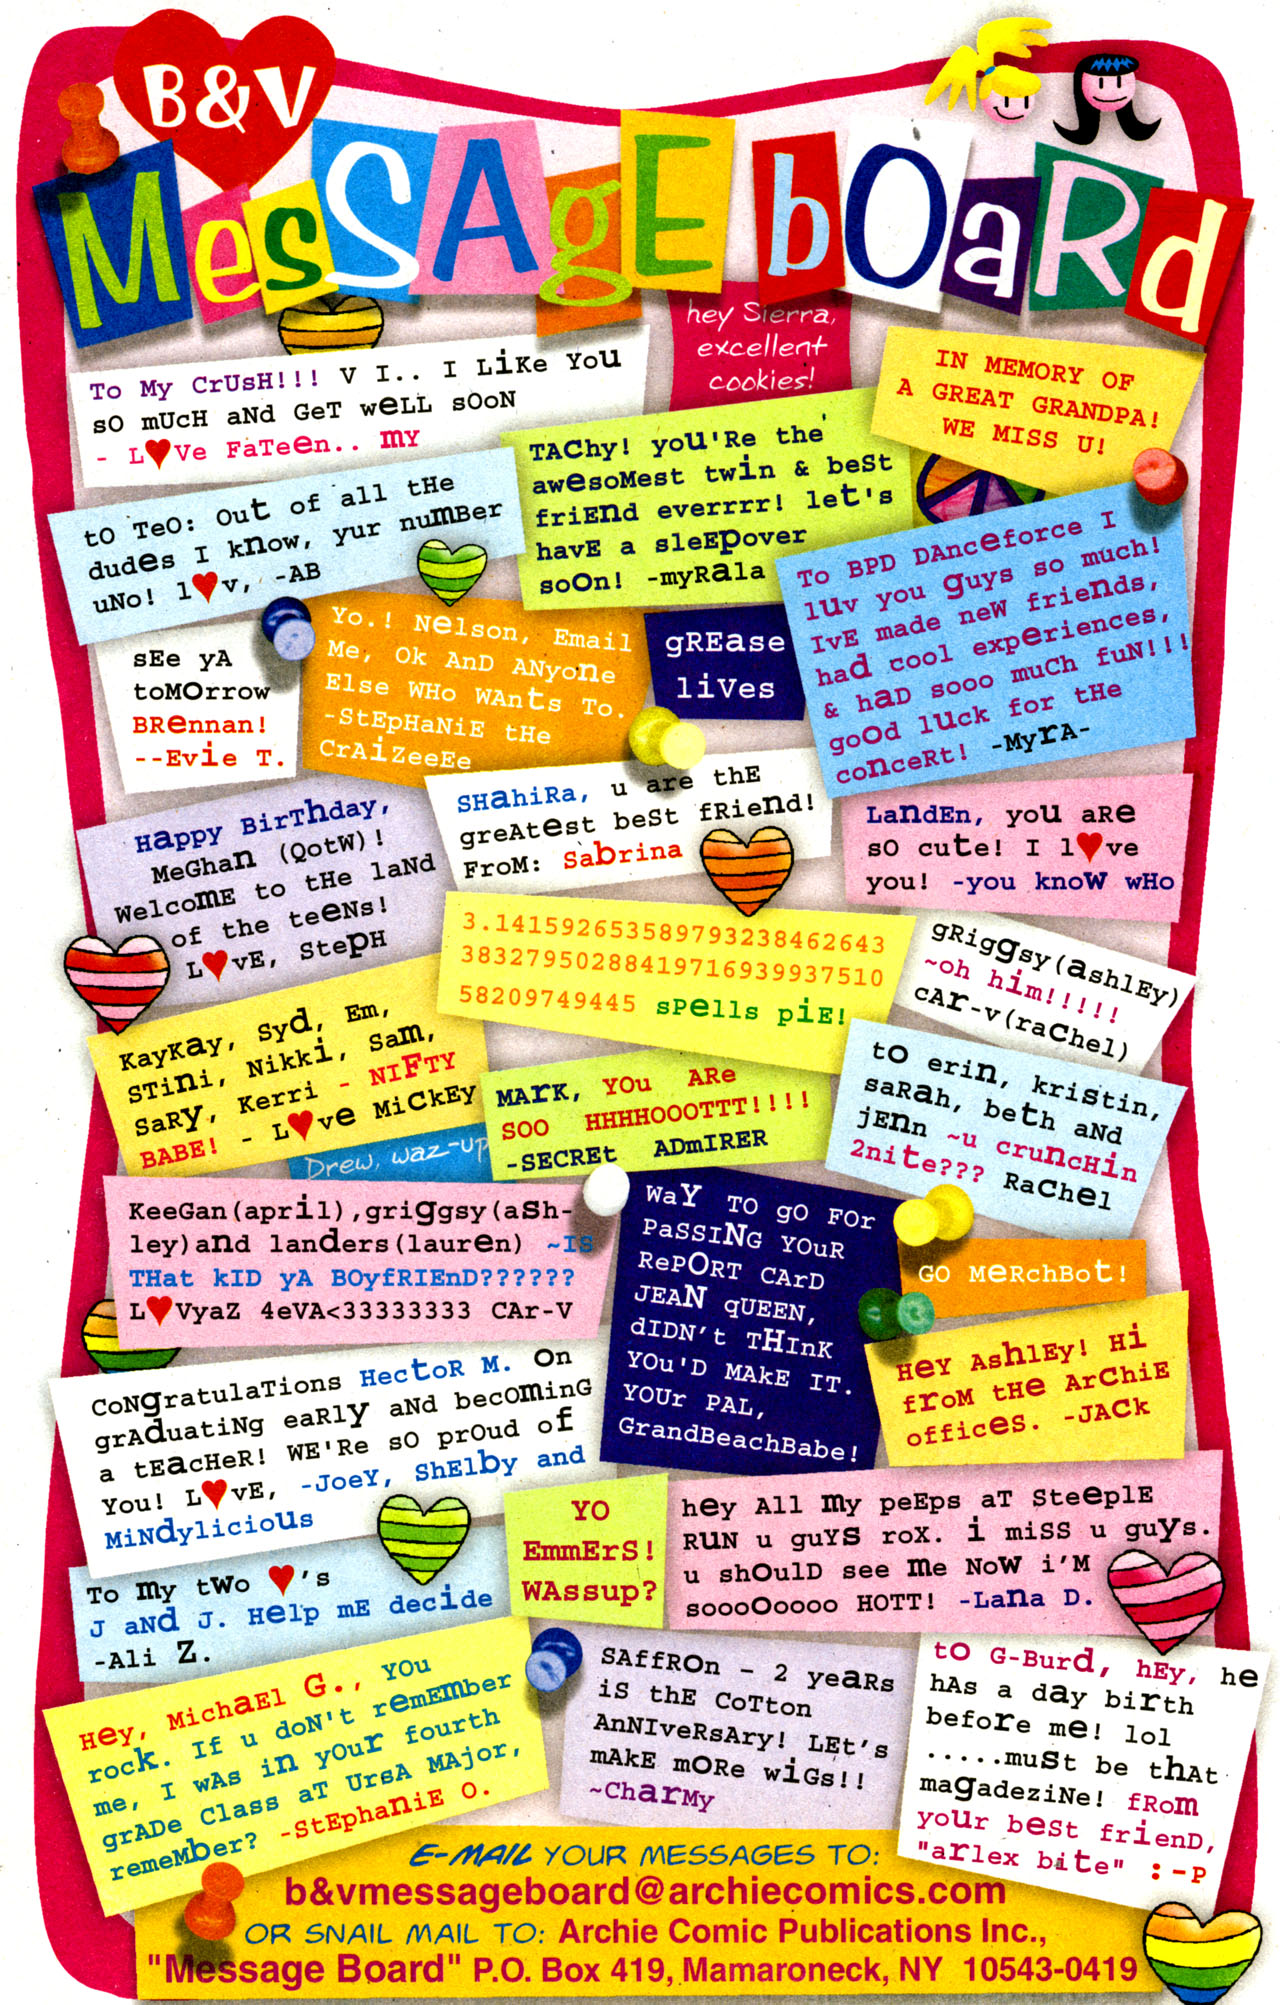 B&V
MesSAgE bOaRd
hey Sierra,
excellent
cookies!
To My CrUsH!!! V I.. I LiKe YoU
sO mUcH aNd GeT weLL sOoN
- L♥Ve FaTeen.. mY
IN MEMORY OF
A GREAT GRANDPA!
WE MISS U!
TAChy! you'Re the
awesoMest twin & beSt
friEnd everrrr! let's
havE a sleEpover
soOn! -myRala
tO TeO: Out of all tHe
dudes I know, yur numBer
uNo! l♥v, -AB
To BPD DAnceforce I
luv you guys so much!
IvE made neW frieNds,
had cool expeRiences,
& haD sooo muCh fuN!!!
goOd luck for tHe
conceRt! -MyrA-
Yo.! Nelson, Email
Me, Ok AnD ANyone
Else WHo WAnts To.
-StEpHaNiE tHe
CrAiZeeEe
gREase
liVes
sEe yA
toMOrrow
BRennan!
--Evie T.
SHahiRa, u are thE
greAtest beSt fRiend!
FroM: Sabrina
LandEn, you aRe
sO cute! I l♥ve
you! -you knoW wHo
Happy BirThday,
MeGhan (QotW)!
WelcomE to tHe laNd
of the teeNs!
L♥vE, StepH
3.14159265358979323846264 3
38327950288419716939937510
58209749445 sPells piE!
gRiggsy(ashlEy)
~oh him!!!!!
cAr-v(raChel)
KayKay, Syd, Em,
STini, Nikki, Sam,
SaRy, Kerri - NIFTY
BABE! - L♥ve MiCkEy
MArK, YOu ARe
SOO HHHHOOOTTT!!!!
-SECREt ADmIRER
tO erin, kristin,
saRah, beth aNd
jEnn ~u cruncHin
2nite??? RaChel
Drew, waz-up
KeeGan(april),griggsy(aSh-
ley)and landers(lauren) ~IS
THat kID yA BOyfRIEnD??????
L♥VyaZ 4eVA<33333333 CAr-V
WaY TO gO FOr
PaSSINg YOuR
RePORT CArD
JEAN qUEEN,
dIDN't THInK
YOu'D MAkE IT.
YOUr PAL,
GrandBeachBabe!
GO MeRchBot!
HeY AshlEy! Hi
froM tHe ArChiE
offices. -JACk
CoNgratulaTions HectoR M. On
grAduatiNg eaRly aNd becOminG
a tEacHeR! WE'Re sO prOud of
You! L♥vE, -JoeY, ShElby and
MiNdylicioUs
YO
EmmErS!
WAssup?
hey All my peEps aT SteeplE
RUN u guYs roX. i miSS u guys.
u shOulD see me NoW i'M
soooOoooo HOTT! -Lana D.
To my tWo ♥'s
J aNd J. Help mE decide
-Ali Z.
Hey, MichaEl G., YOu
rock. If u doN't remEmber
me, I wAs in yOur fourth
grADe Class aT UrsA MAjor,
remeMber? -StEphaniE O.
SAffROn - 2 yeaRs
iS thE CoTton
AnNIveRsAry! LEt's
mAkE mORe wiGs!!
~CharMy
tO G-Burd, hEy, he
hAs a day birth
before me! lol
.....muSt be thAt
magadeziNe! fRom
your beSt friEnD,
"arlex bite" :-P
E-MAIL YOUR MESSAGES TO:
b&vmessageboard@archiecomics.com
OR SNAIL MAIL TO: Archie Comic Publications Inc.,
"Message Board" P.O. Box 419, Mamaroneck, NY 10543-0419